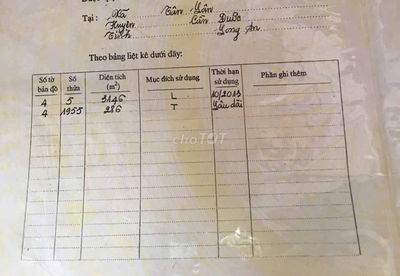 Tại : Xã Tân Lân
Huyện Cần Đước
Tỉnh Long An
Theo bảng liệt kê dưới đây:
Số tờ bản đồ Số thửa Diện tích (m²) Mục đích sử dụng Thời hạn sử dụng Phần ghi thêm
4 5 3146 L 10/2013
4 1955 286 T Lâu dài
choTOT